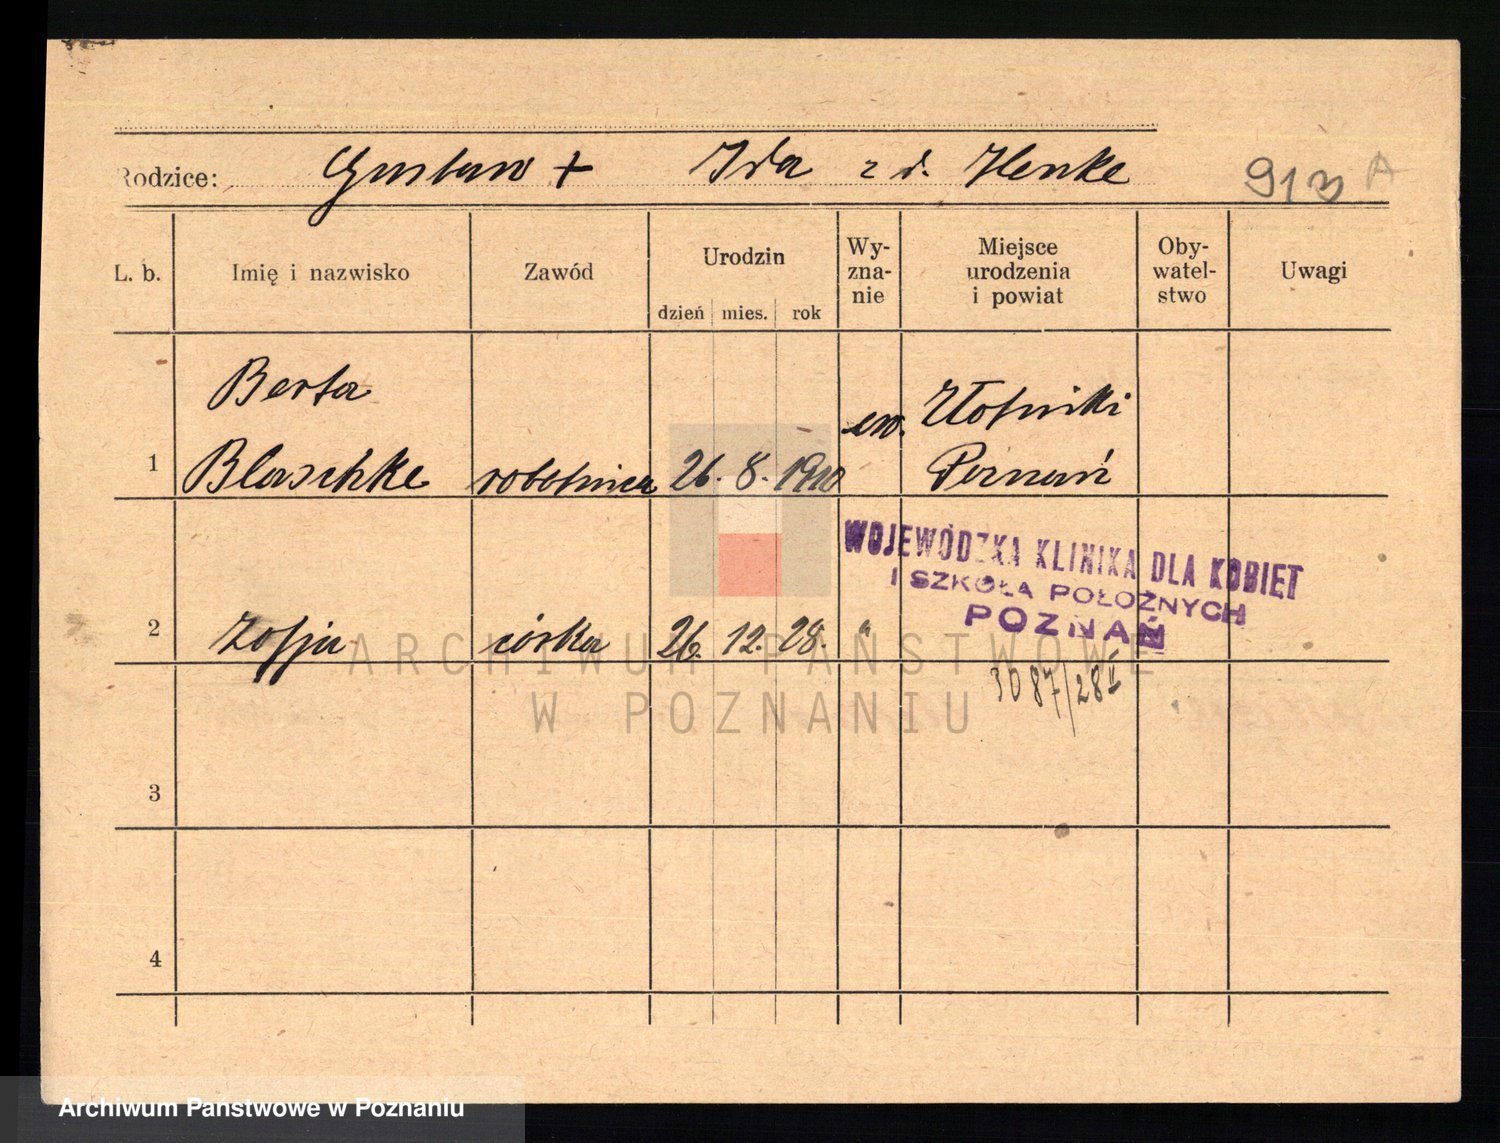 Rodzice: Gustaw + Ida z d. Henke 913 A
L. b. Imię i nazwisko Zawód Urodzin dzień mies. rok Wy-zna-nie Miejsce urodzenia i powiat Oby-watel-stwo Uwagi
Berta
ew. Złotniki
1 Blaschke robotnica 26. 8. 1910 Poznań
WOJEWÓDZKA KLINIKA DLA KOBIET
I SZKOŁA POŁOŻNYCH
POZNAŃ
2 Zofja córka 26. 12. 28. "
3087/28 II
ARCHIWUM PAŃSTWOWE
W POZNANIU
3
4
Archiwum Państwowe w Poznaniu